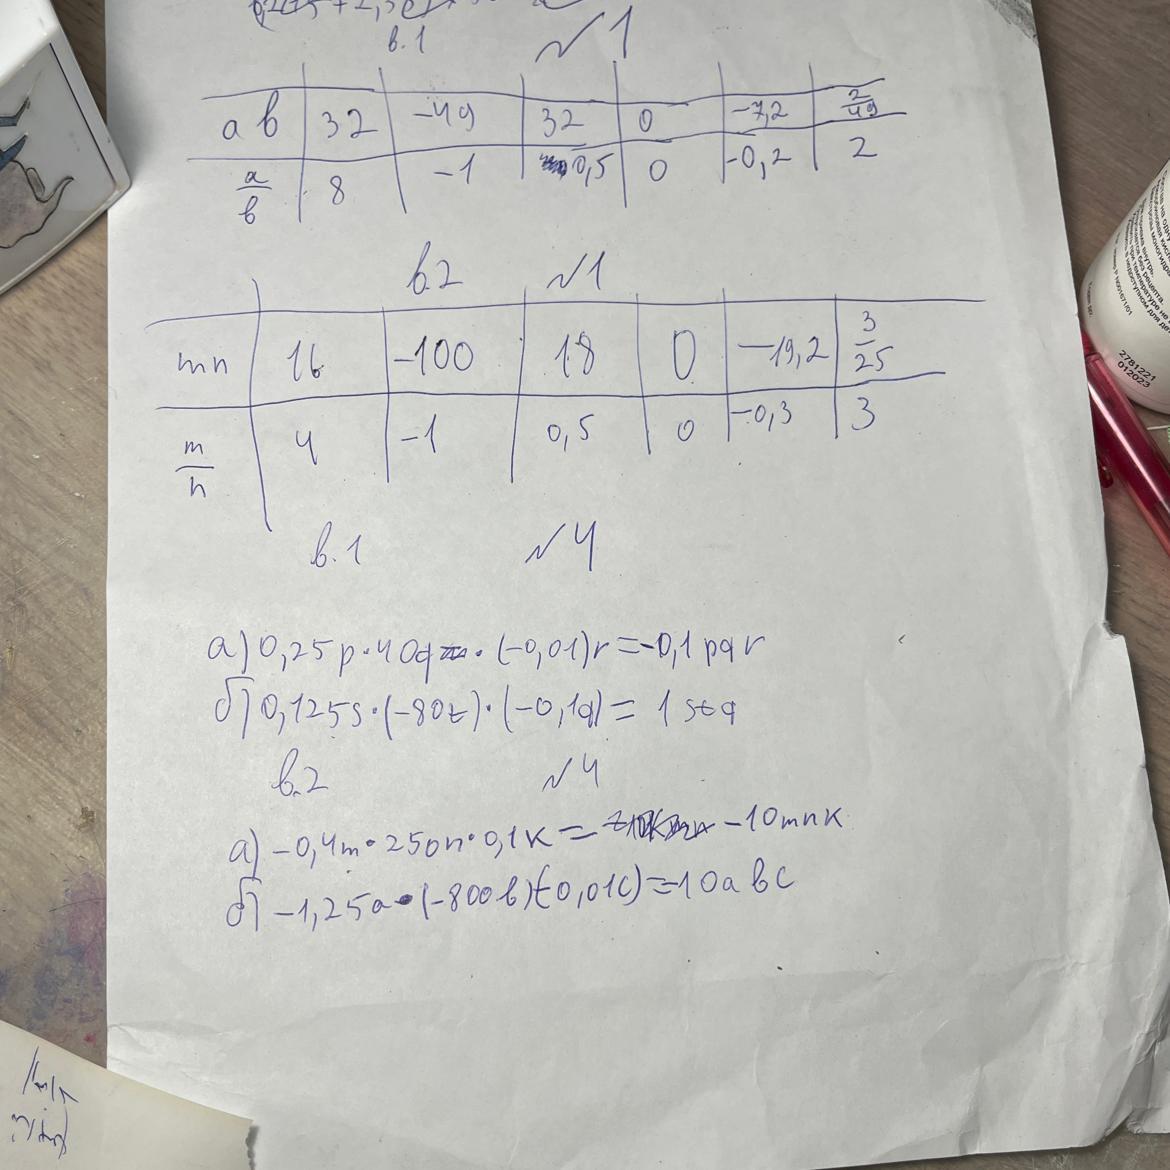 в.1 №1
ab 32 -49 32 0 -7,2 2/49
a/b 8 -1 0,5 0 -0,2 2
в.2 №1
mn 16 -100 18 0 -19,2 3/25
m/n 4 -1 0,5 0 -0,3 3
в.1 №4
а) 0,25p·40q·(-0,01)r=-0,1pqr
б) 0,125s·(-80t)·(-0,1q)=1stq
в.2 №4
а) -0,4m·250n·0,1k= -10mnk
б) -1,25a·(-800b)(-0,01c)=-10abc
2781221
012023